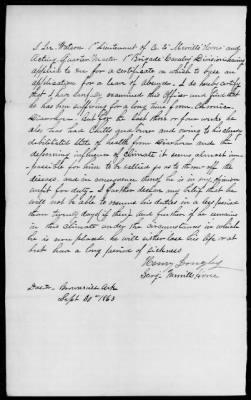 J. W. Watson 1st Lieutenant of Co. "C" Merrills Horse and
Acting Quarter Master 1st Brigade Cavalry Division having
applied to me for a certificate on which to base an
application for a leave of absence. I do hereby certify
that I have carefully examined this Officer and find that
he has been suffering for a long time from Chronic
Diarrhoea - but for the last three or four weeks he
also has had Chills and fever and owing to his already
debilitated state of health from Diarrhoea and the
depressing influence of climate it seems almost im-
possible for him to so as to throw off the
disease, and in consequence thereof he is in my opinion
unfit for duty - I further declare my belief that he
will not be able to resume his duties in a less period
than twenty days if then, and further if he remains
in this climate under the circumstances in which
he is now placed, he will either lose his life or at
best have a long period of sickness
Surg. Merrills Horse
Dated Brownsville Ark
Sept 20th 1863